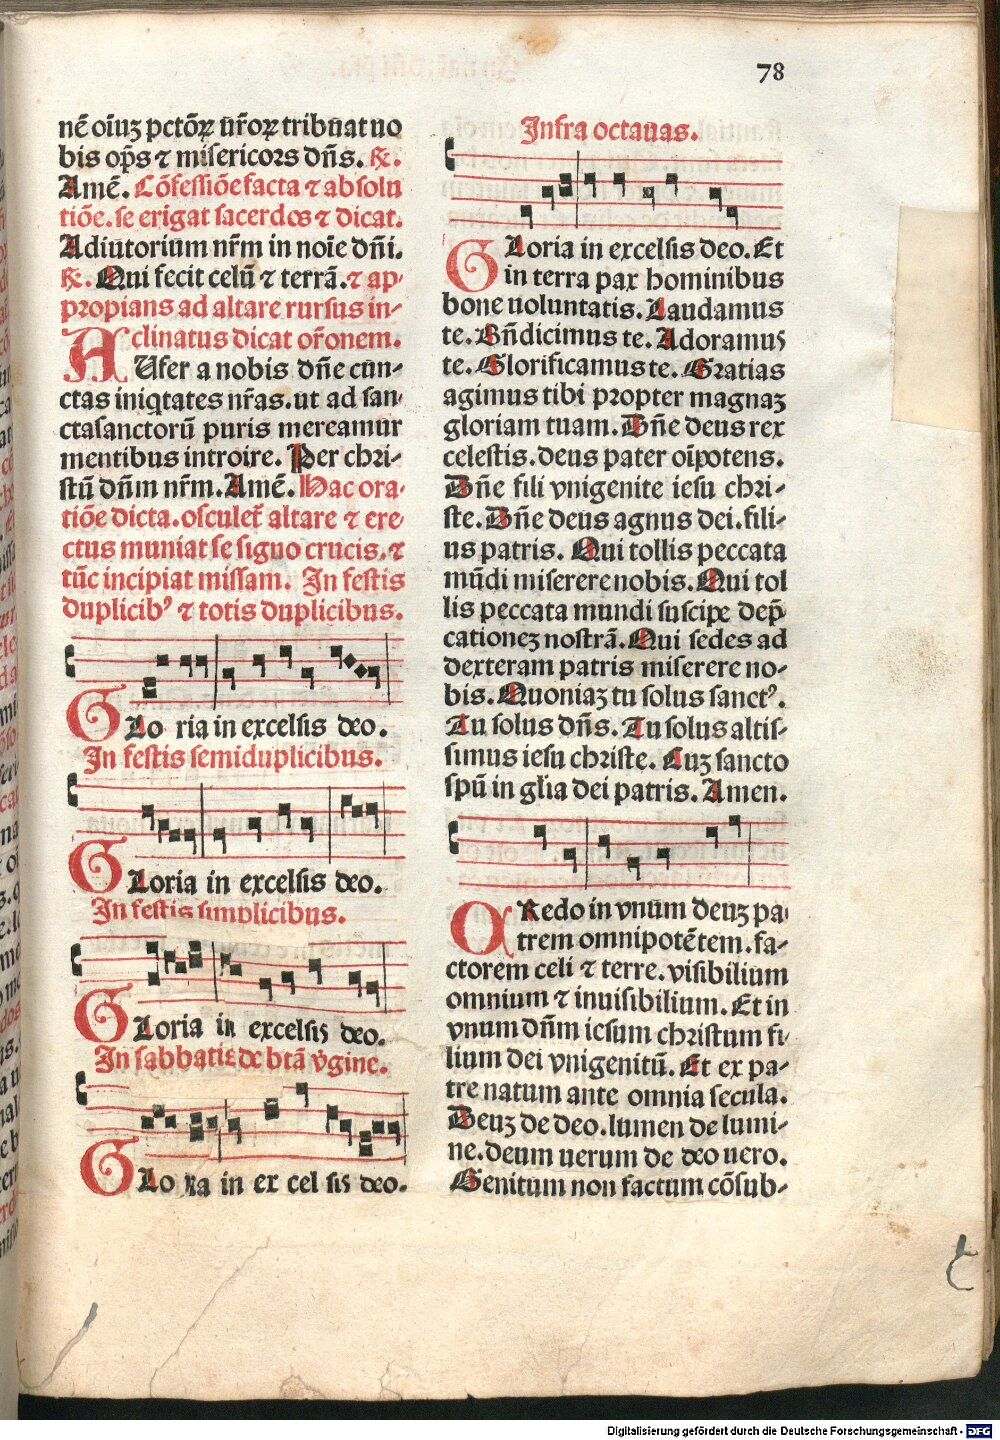 78
nē oīuꝫ pctōꝝ ur̄oꝝ tribuat uo
bis op̄s ⁊ misericors dn̄s. ℟.
Amē. Cōfessiōe facta ⁊ absolu
tiōe. se erigat sacerdos ⁊ dicat.
Adiutorium nr̄m in noīe dn̄i.
℟. Qui fecit celū ⁊ terrā. ⁊ ap-
propians ad altare rursus in-
clinatus dicat or̄onem.
AUfer a nobis dn̄e cun-
ctas iniqtates nr̄as. ut ad san-
cta sanctorū puris mereamur
mentibus introire. Per chri-
stū dn̄m nr̄m. Amē. Hac ora-
tiōe dicta. osculet̄ altare ⁊ ere-
ctus muniat se signo crucis. ⁊
tūc incipiat missam. In festis
duplicibꝰ ⁊ totis duplicibus.
GLo ria in excelsis deo.
In festis semiduplicibus.
GLoria in excelsis deo.
In festis simplicibus.
GLoria in excelsis deo.
In sabbatis de btā v̄gine.
GLo ria in ex cel sis deo.
Infra octauas.
GLoria in excelsis deo. Et
in terra pax hominibus
bone uoluntatis. Laudamus
te. Bn̄dicimus te. Adoramus
te. Glorificamus te. Gratias
agimus tibi propter magnaꝫ
gloriam tuam. Dn̄e deus rex
celestis. deus pater oīpotens.
Dn̄e fili vnigenite iesu chri-
ste. Dn̄e deus agnus dei. fili-
us patris. Qui tollis peccata
mūdi miserere nobis. Qui tol
lis peccata mundi suscipe dep̄
cationeꝫ nostrā. Qui sedes ad
dexteram patris miserere no-
bis. Quoniaꝫ tu solus sanctꝰ.
Tu solus dn̄s. Tu solus altis-
simus iesu christe. Cuꝫ sancto
spū in glīa dei patris. Amen.
CRedo in vnum deuꝫ pa
trem omnipotētem. fa-
ctorem celi ⁊ terre. visibilium
omnium ⁊ inuisibilium. Et in
vnum dn̄m iesum christum fi-
lium dei vnigenitū. Et ex pa-
tre natum ante omnia secula.
Deuꝫ de deo. lumen de lumi-
ne. deum uerum de deo uero.
Genitum non factum cōsub-
Digitalisierung gefördert durch die Deutsche Forschungsgemeinschaft - DFG